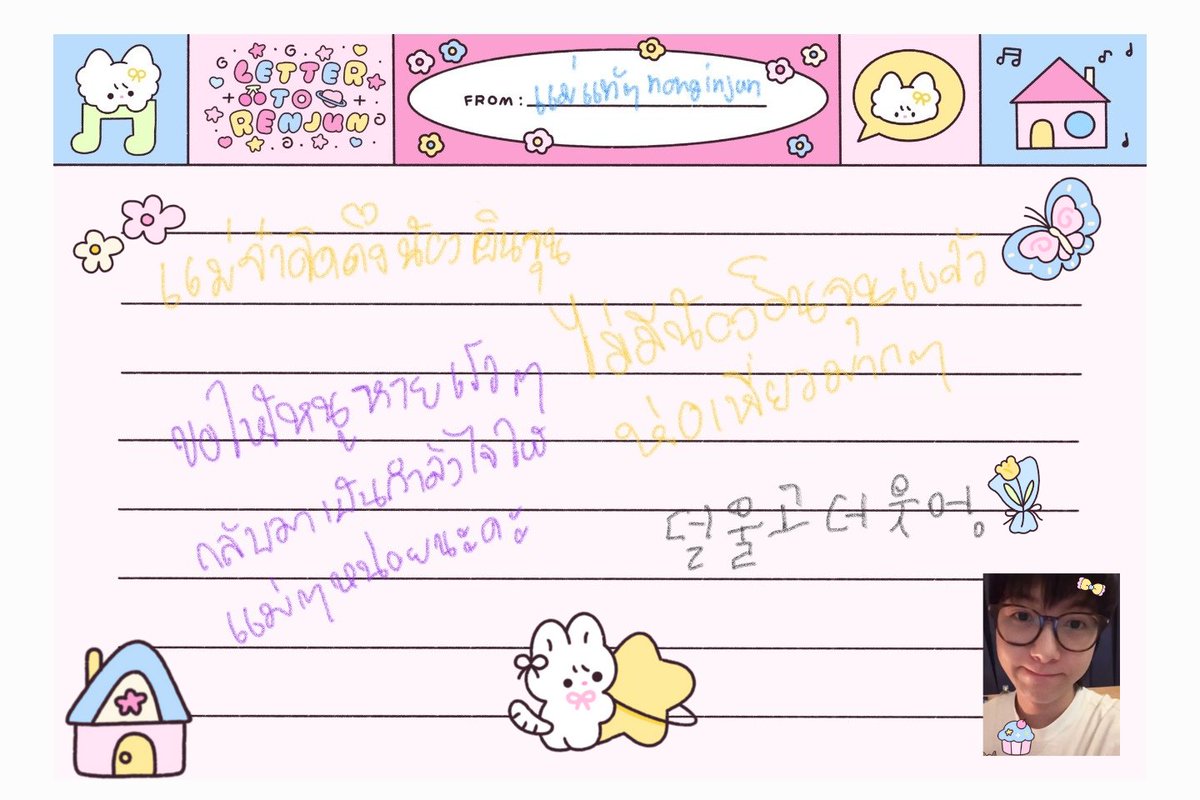 LETTER
TO
RENJUN
FROM: แม่แท้ๆ nonginjun
แม่จ๋าคิดถึงน้องอินจุน
ไม่มีน้องอินจุนแล้ว
ห่อเหี่ยวมากๆ
ขอให้หนูหายเร็วๆ
กลับมาเป็นกำลังใจให้
แม่ๆหน่อยนะคะ
덜 울고 더 웃어